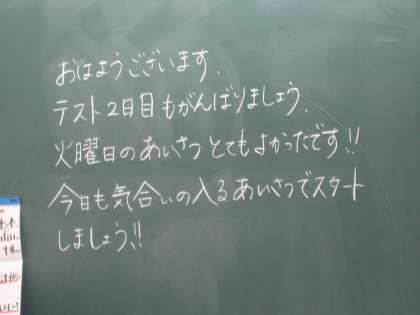 おはようございます.
テスト2日目もがんばりましょう.
火曜日のあいさつとてもよかったです!!
今日も気合いの入るあいさつでスタート
しましょう!!